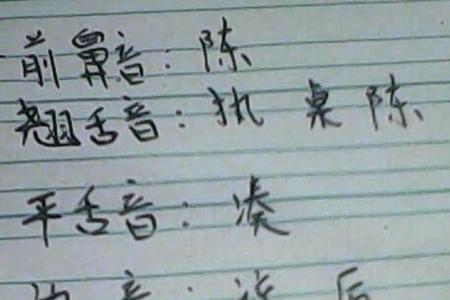 前鼻音：陈
翘舌音：执 桌 陈
平舌音：凑
音：